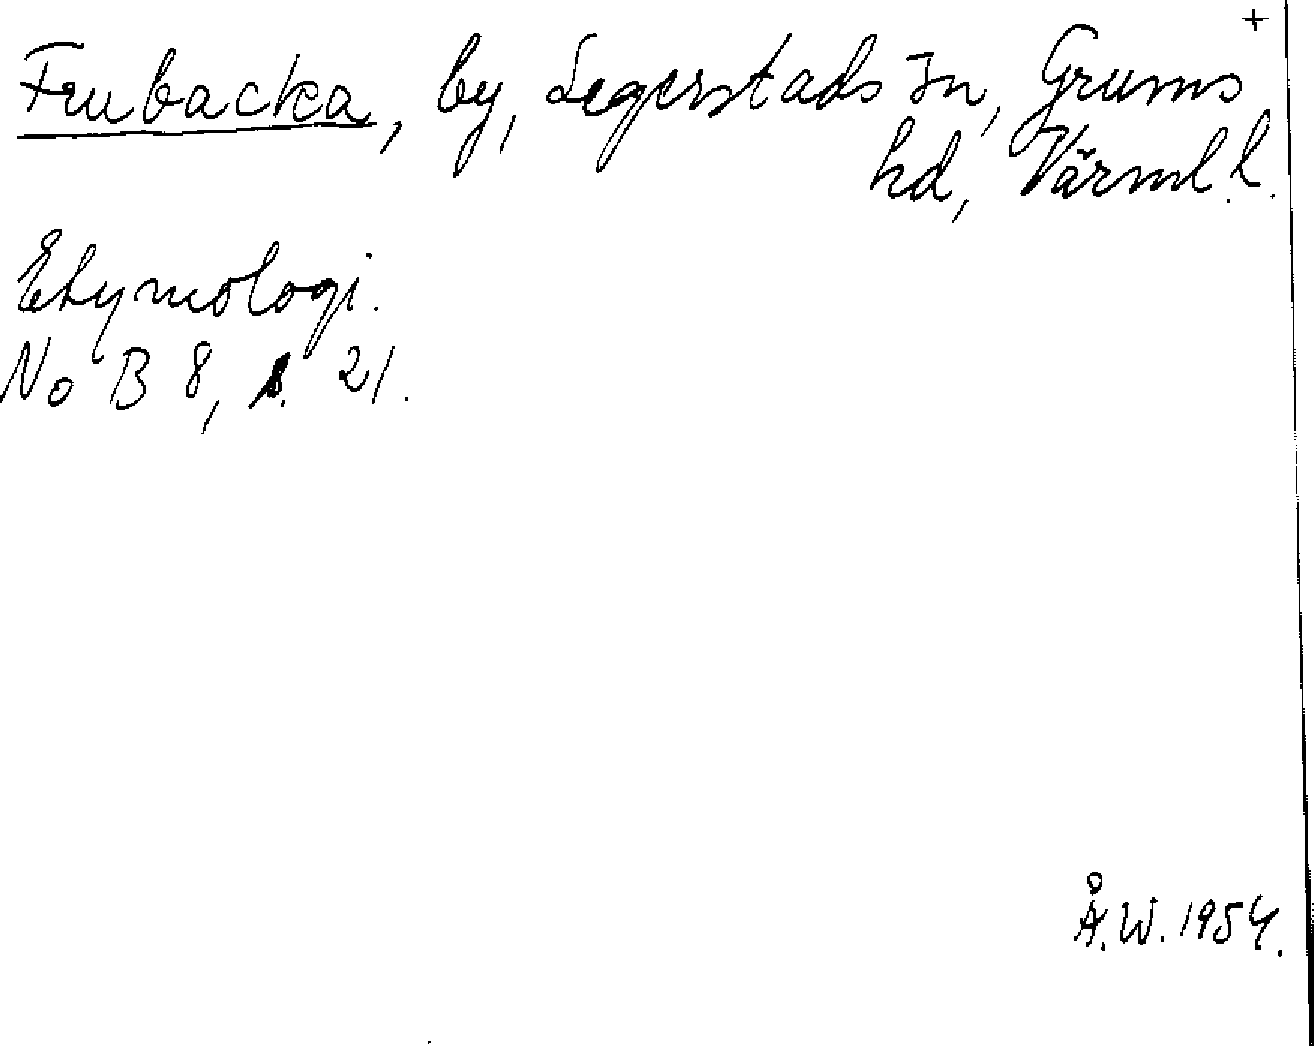 +
Frubacka, by, Segerstads sn, Grums
hd, Värml. l.
Etymologi.
No B 8, s. 21.
Å.W. 1954.